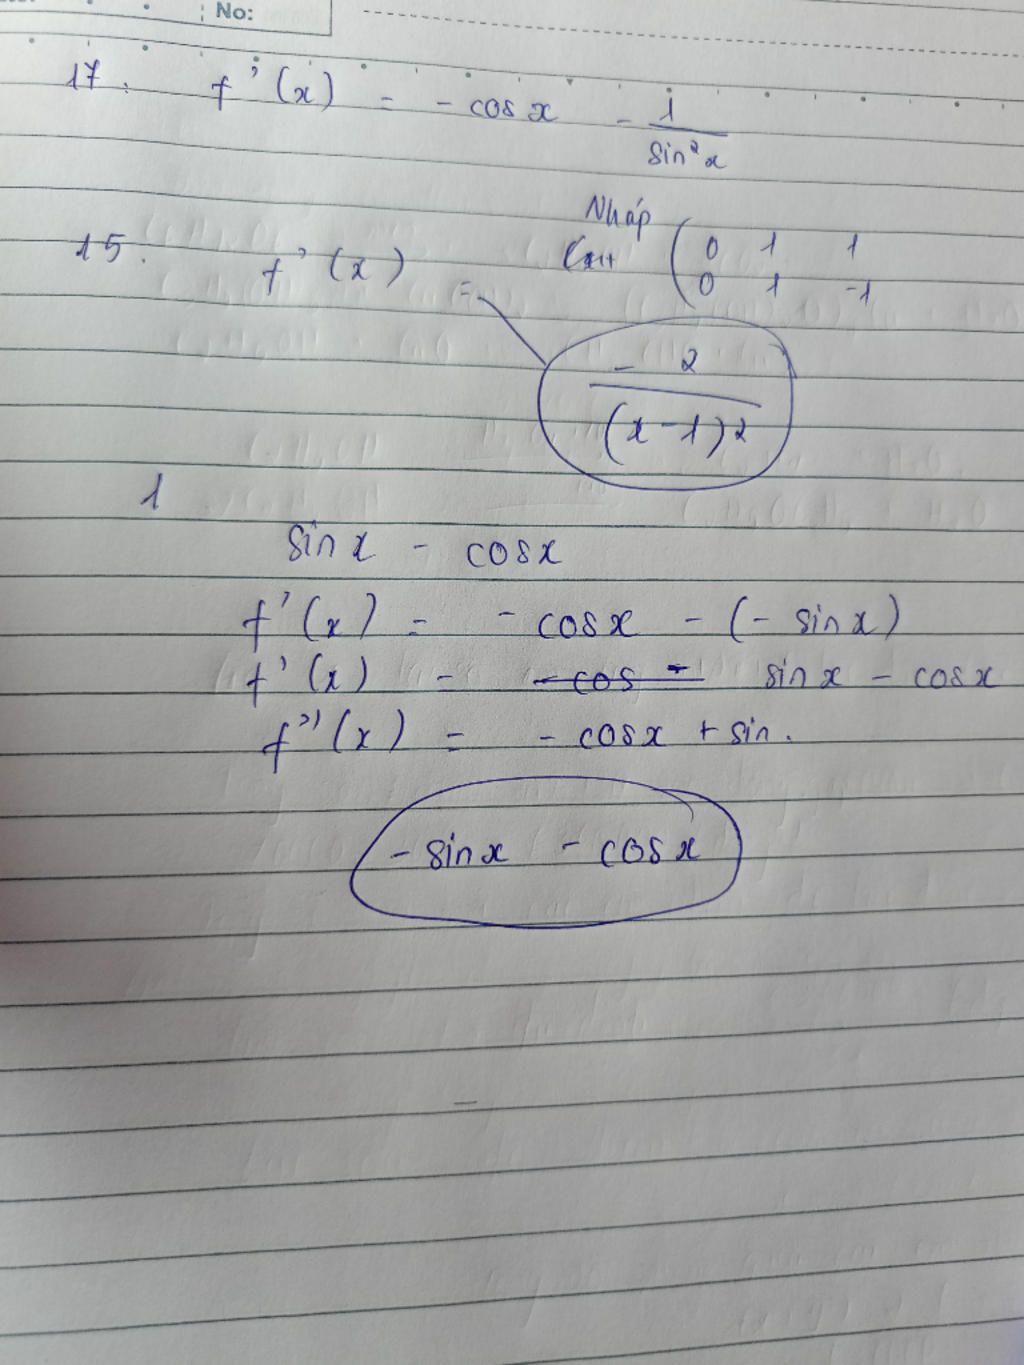 No:
17. f'(x) = - cosx - 1/sin²x
Nháp
15. f'(x) = ( 0 1 1
0 1 -1
- 2
(x-1)2
1
sinx - cosx
f'(x) = - cosx - (- sinx)
f'(x) = -cos - sinx - cosx
f''(x) = - cosx + sin.
- sinx - cosx